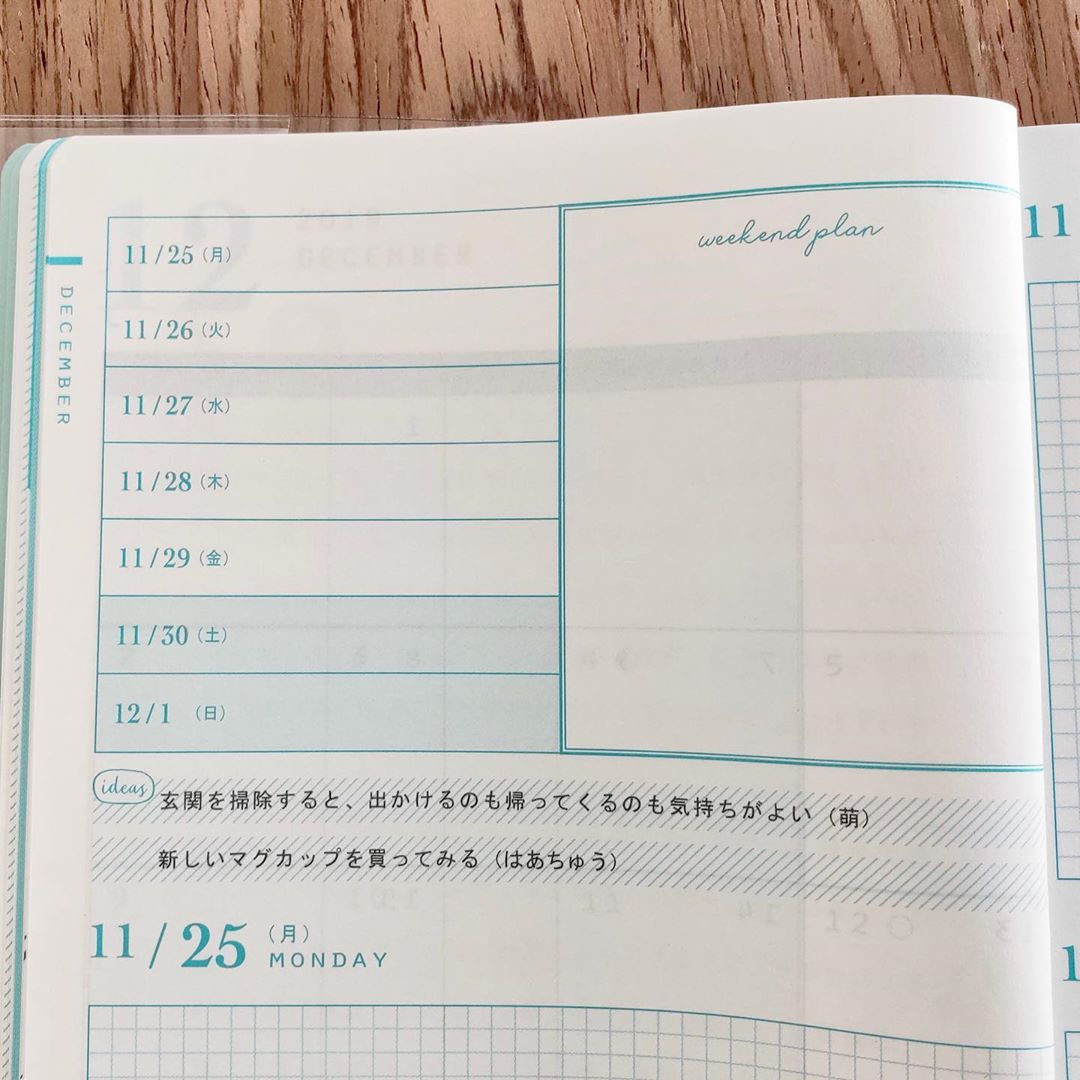 DECEMBER
11/25（月）
11/26（火）
11/27（水）
11/28（木）
11/29（金）
11/30（土）
12/1（日）
weekend plan
ideas
玄関を掃除すると、出かけるのも帰ってくるのも気持ちがよい（萌）
新しいマグカップを買ってみる（はあちゅう）
11/25（月）
MONDAY
11
1
12
2019
DECEMBER